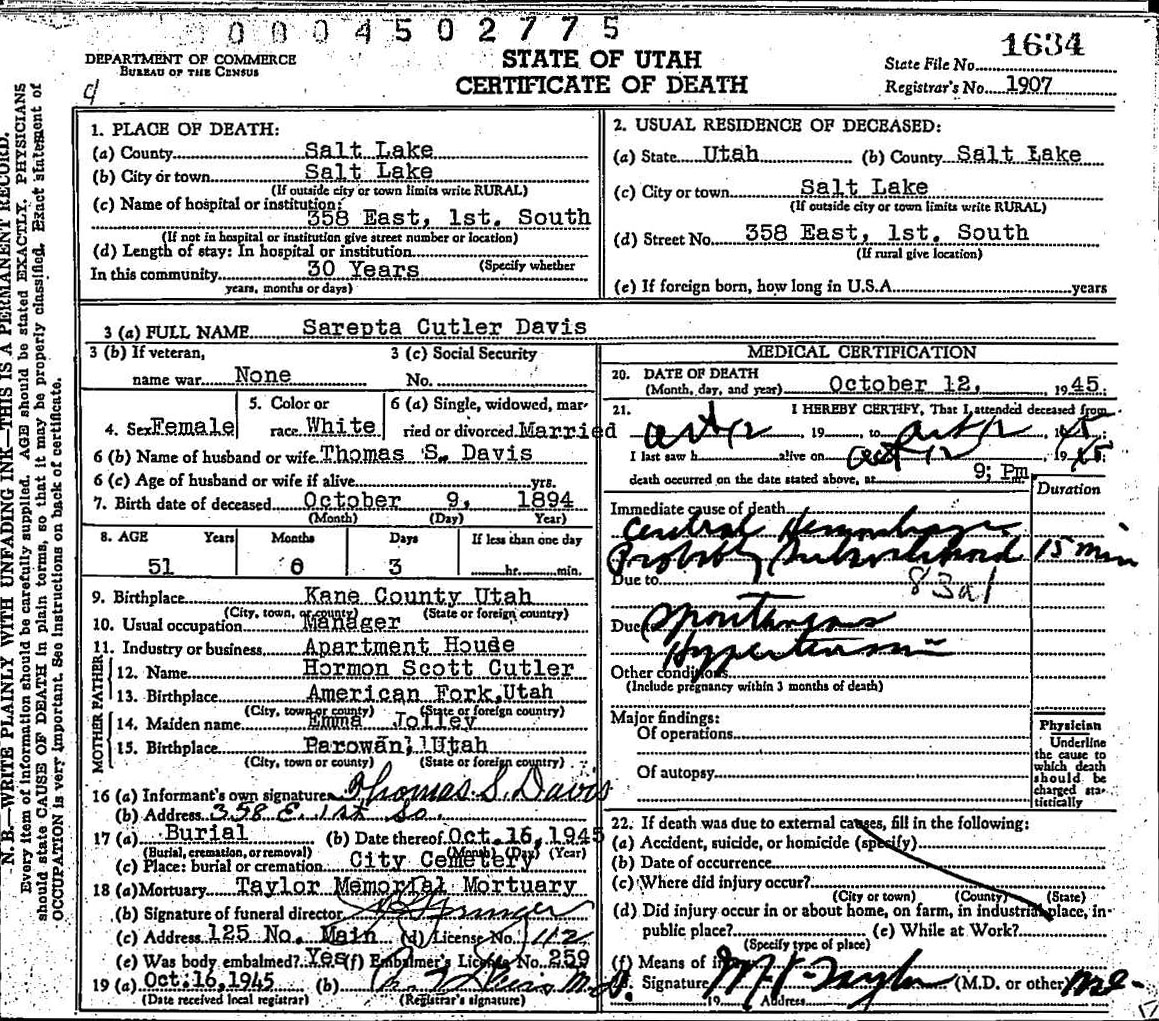 0004502775
1634
DEPARTMENT OF COMMERCE
BUREAU OF THE CENSUS
STATE OF UTAH
CERTIFICATE OF DEATH
State File No.
Registrar's No. 1907
d
N.B.—WRITE PLAINLY WITH UNFADING INK—THIS IS A PERMANENT RECORD.
Every item of information should be carefully supplied. AGE should be stated EXACTLY. PHYSICIANS
should state CAUSE OF DEATH in plain terms, so that it may be properly classified. Exact statement of
OCCUPATION is very important. See Instructions on back of certificate.
1. PLACE OF DEATH:
(a) County Salt Lake
(b) City or town Salt Lake
(If outside city or town limits write RURAL)
(c) Name of hospital or institution:
358 East, 1st. South
(If not in hospital or institution give street number or location)
(d) Length of stay: In hospital or institution
(Specify whether
In this community 30 Years
years, months or days)
2. USUAL RESIDENCE OF DECEASED:
(a) State Utah (b) County Salt Lake
(c) City or town Salt Lake
(If outside city or town limits write RURAL)
(d) Street No. 358 East, 1st. South
(If rural give location)
(e) If foreign born, how long in U.S.A. years
3 (a) FULL NAME Sarepta Cutler Davis
3 (b) If veteran,
name war None
3 (c) Social Security
No.
4. Sex Female
5. Color or
race White
6 (a) Single, widowed, mar-
ried or divorced Married
6 (b) Name of husband or wife Thomas S. Davis
6 (c) Age of husband or wife if alive yrs.
7. Birth date of deceased October 9, 1894
(Month) (Day) Year)
8. AGE Years Months Days If less than one day
51 0 3 hr. min.
9. Birthplace Kane County Utah
(City, town, or county) (State or foreign country)
10. Usual occupation Manager
11. Industry or business Apartment House
FATHER
12. Name Hormon Scott Cutler
13. Birthplace American Fork, Utah
(City, town or county) (State or foreign country)
MOTHER
14. Maiden name Emma Jolley
15. Birthplace Parowan, Utah
(City, town or county) (State or foreign country)
16 (a) Informant's own signature Thomas S. Davis
(b) Address 358 E. 1st So.
17 (a) Burial (b) Date thereof Oct. 16, 1945
(Burial, cremation, or removal) (Month) (Day) (Year)
(c) Place: burial or cremation City Cemetery
18 (a) Mortuary Taylor Memorial Mortuary
(b) Signature of funeral director
(c) Address 125 No. Main (d) License No. 112
(e) Was body embalmed? Yes (f) Embalmer's License No. 259
19 (a) Oct. 16, 1945 (b) M.D.
(Date received local registrar) (Registrar's signature)
MEDICAL CERTIFICATION
20. DATE OF DEATH
(Month, day, and year) October 12, 1945.
21. I HEREBY CERTIFY, That I attended deceased from
Oct 12, 19 , to Oct 12, 1945.
I last saw h alive on Oct 12, 1945.
death occurred on the date stated above, at 9; Pm
Duration
Immediate cause of death
Hemorrhage
Probably 15 min
Due to
83a1
Due to Spontaneous
Hypertension
Other conditions
(Include pregnancy within 3 months of death)
Major findings:
Of operations
Of autopsy
Physician
Underline
the cause to
which death
should be
charged sta-
tistically
22. If death was due to external causes, fill in the following:
(a) Accident, suicide, or homicide (specify)
(b) Date of occurrence
(c) Where did injury occur?
(City or town) (County) (State)
(d) Did injury occur in or about home, on farm, in industrial place, in-
public place? (e) While at Work?
(Specify type of place)
(f) Means of
Signature Taylor (M.D. or other)
19 Address